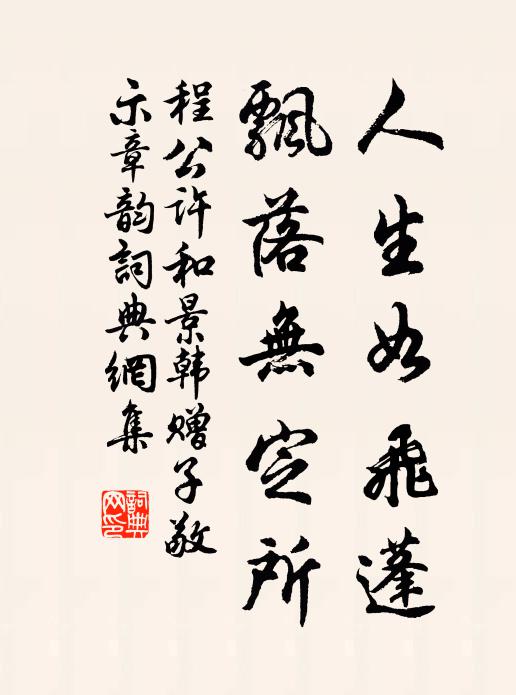 人生如飛蓬
飄落無定所
程公許和景韓贈子敬
示章韵詞典網集
詞典网印